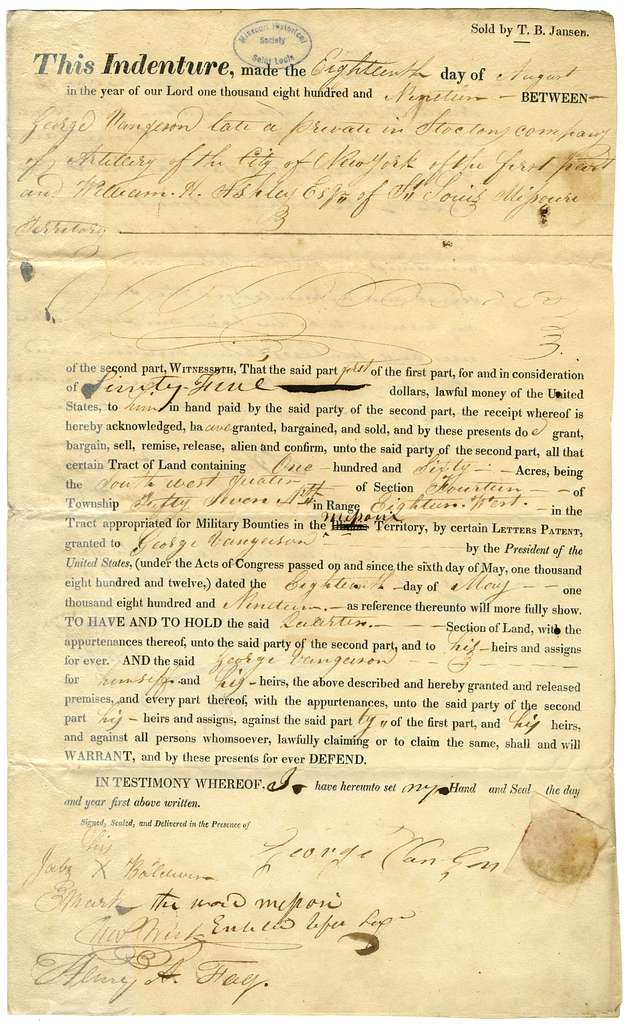 Sold by T. B. Jansen.
Missouri Historical
Society
Saint Louis
This Indenture, made the Eighteenth day of August
in the year of our Lord one thousand eight hundred and Nineteen BETWEEN
George Vangeson late a private in Stoctons company
of Artillery of the City of New York of the first part
and William H. Ashley Esqr of St Louis Missouri
Territory
of the second part, WITNESSETH, That the said part of the first part, for and in consideration
of Ninety Five dollars, lawful money of the United
States, to him in hand paid by the said party of the second part, the receipt whereof is
hereby acknowledged, ha ave granted, bargained, and sold, and by these presents do grant,
bargain, sell, remise, release, alien and confirm, unto the said party of the second part, all that
certain Tract of Land containing One hundred and Sixty Acres, being
the South west quarter of Section Fourteen of
Township Fifty Seven Nth in Range Eighteen West. in the
Tract appropriated for Military Bounties in the missouri Territory, by certain LETTERS PATENT,
granted to George Vangeeson by the President of the
United States, (under the Acts of Congress passed on and since the sixth day of May, one thousand
eight hundred and twelve,) dated the Eighteenth day of May one
thousand eight hundred and Nineteen. as reference thereunto will more fully show.
TO HAVE AND TO HOLD the said Quarter. Section of Land, with the
appurtenances thereof, unto the said party of the second part, and to his heirs and assigns
for ever. AND the said George Vangeeson
for himself and his heirs, the above described and hereby granted and released
premises, and every part thereof, with the appurtenances, unto the said party of the second
part his heirs and assigns, against the said part ty of the first part, and his heirs,
and against all persons whomsoever, lawfully claiming or to claim the same, shall and will
WARRANT, and by these presents for ever DEFEND.
IN TESTIMONY WHEREOF, I have hereunto set my Hand and Seal the day
and year first above written.
Signed, Sealed, and Delivered in the Presence of
his
George Van
X Baldwin
mark the word missouri
Henry A. Fay.